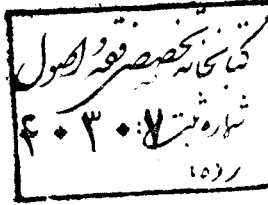 کتابخانه تخصصی فقه و اصول
شماره ثبت: ۴۰۳۰۷